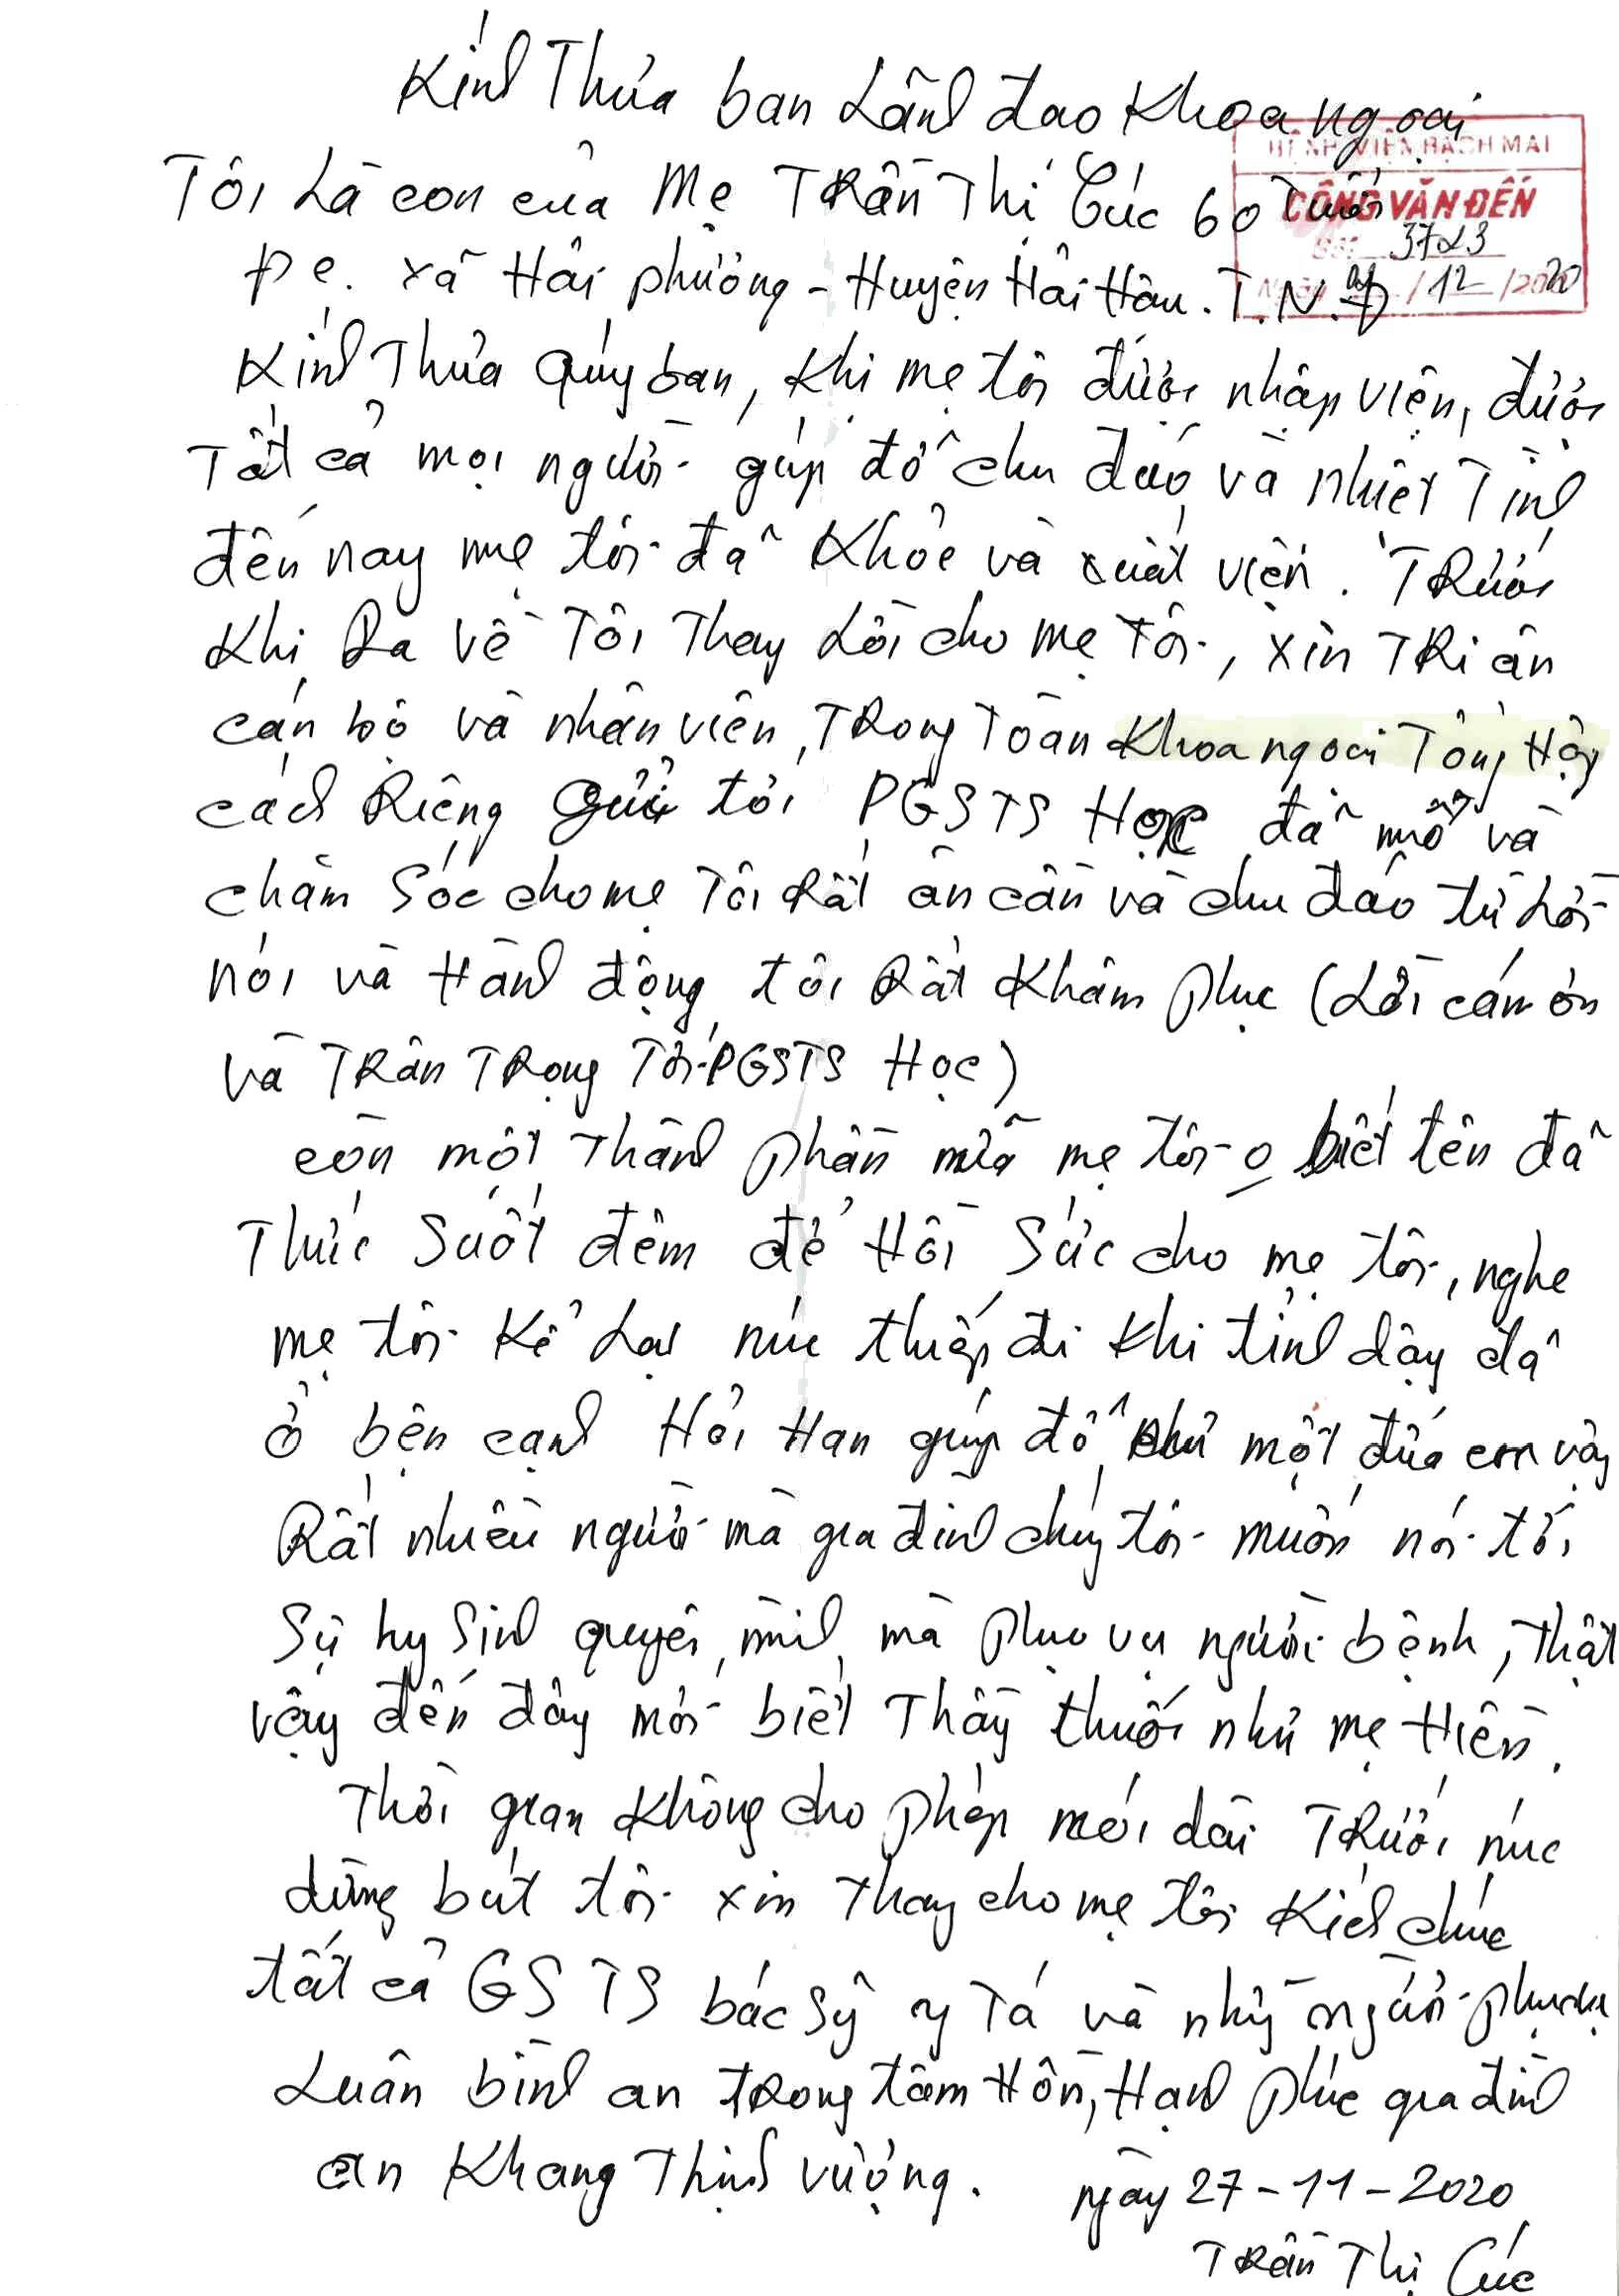 Kính Thưa ban Lãnh đạo Khoa ngoại
BỆNH VIỆN BẠCH MAI
Tôi Là con của Mẹ TRần Thị Cúc 60 Tuổi
CÔNG VĂN ĐẾN
3723
Đ c. xã Hải phương - Huyện Hải Hậu. T. N. Đ
/ 12 / 2020
Kính Thưa Qúy ban, Khi mẹ tôi được nhập viện, được
Tất cả mọi người giúp đỡ chu đáo và nhiệt Tình
đến nay mẹ tôi đã Khỏe và xuất viện. TRước
Khi Ra về Tôi Thay Lời cho mẹ Tôi, xin TRi ân
cán bộ và nhân viên, TRong Toàn Khoa ngoại Tổng Hợp
cách Riêng Gửi tới PGSTS Học đã mổ và
chăm Sóc cho mẹ Tôi Rất ân cần và chu đáo từ Lời
nói và Hành động, tôi Rất Khâm phục (Lời cám ơn
và TRân TRọng Tới PGSTS Học)
còn một Thành phần nữa mẹ tôi o biết tên đã
Thức Suốt đêm để Hồi Sức cho mẹ tôi, nghe
mẹ tôi Kể Lại núc thiếp đi Khi tỉnh dậy đã
ở bên cạnh Hỏi Han giúp đỡ như một đứa con vậy
Rất nhiều người mà gia đình chúng tôi muốn nói tới
Sự hy Sinh quyên mình mà phục vụ người bệnh, Thật
vậy đến đây mới biết Thầy thuốc như mẹ Hiền.
Thời gian Không cho phép nói dài TRước núc
dừng bút tôi xin Thay cho mẹ tôi Kính chúc
tất cả GS TS bác sỹ y Tá và những người phục vụ
Luân bình an tRong tâm Hồn, Hạnh phúc gia đình
an Khang Thịnh vượng. ngày 27-11-2020
TRần Thị Cúc